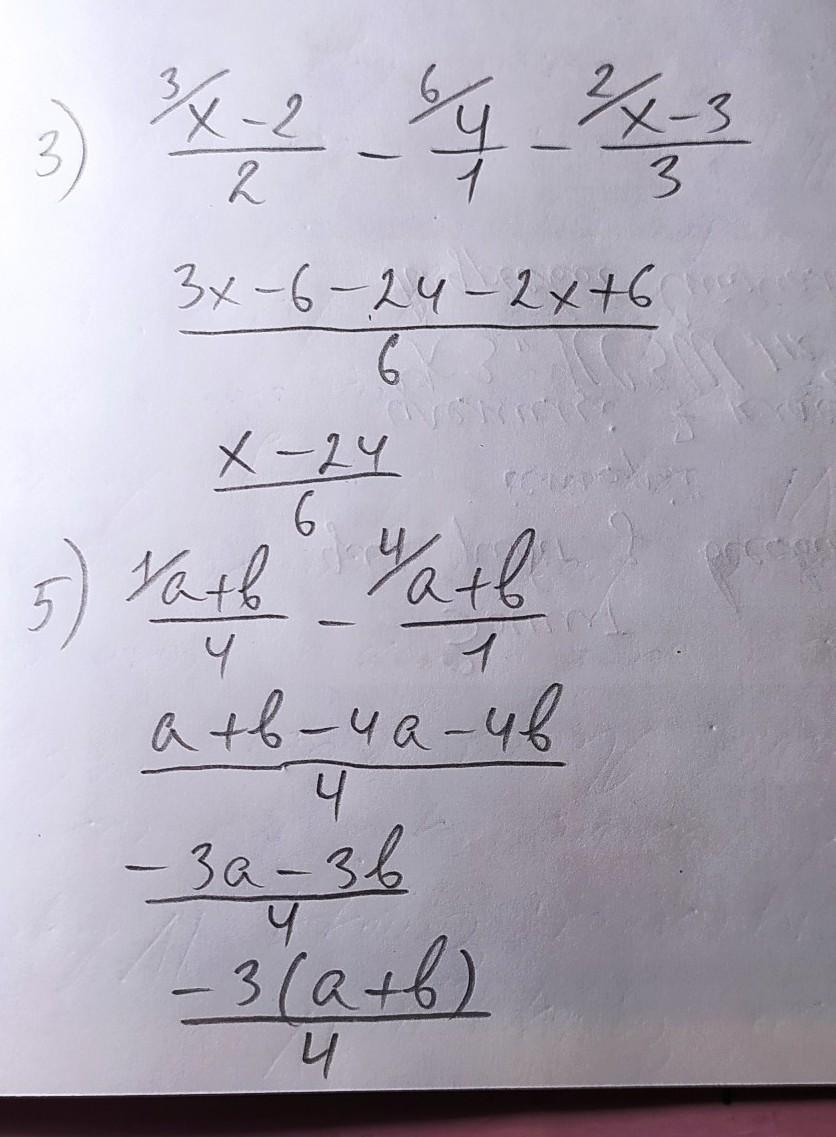 3) ³/x-2 / 2 - ⁶/4 / 1 - ²/x-3 / 3
3x-6-24-2x+6 / 6
x-24 / 6
5) ¹/a+b / 4 - ⁴/a+b / 1
a+b-4a-4b / 4
-3a-3b / 4
-3(a+b) / 4